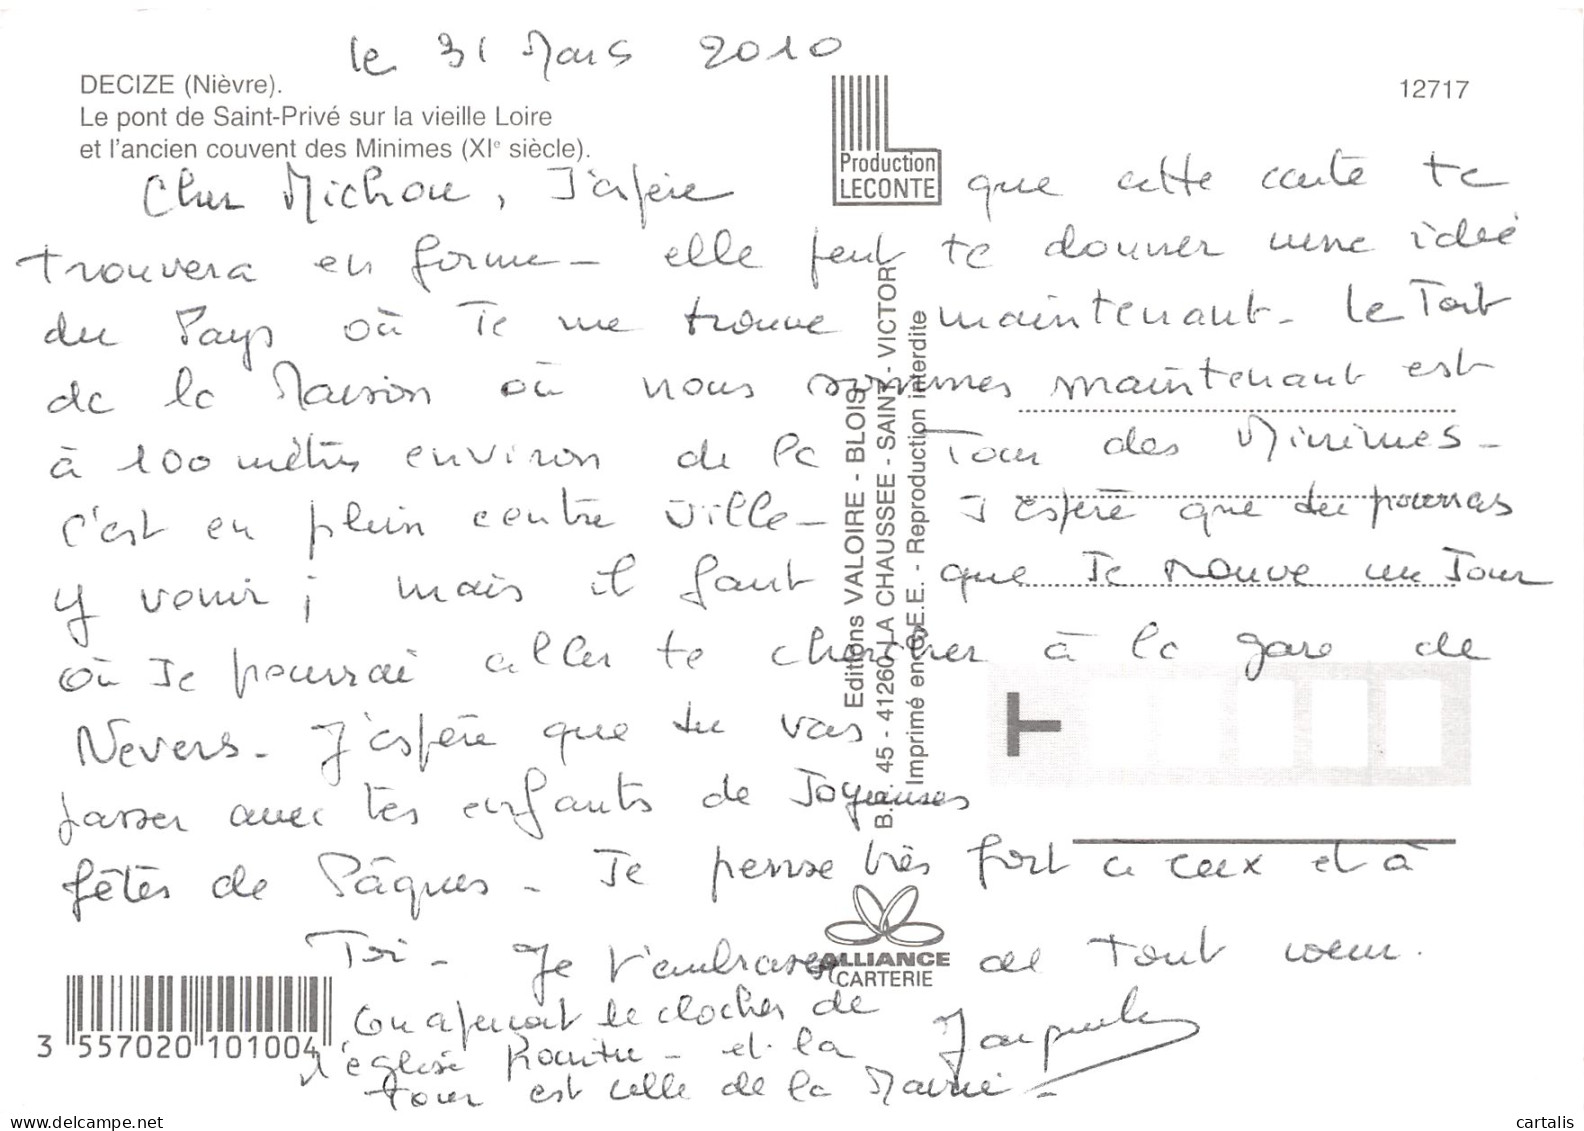 le 31 Mars 2010
DECIZE (Nièvre).
Le pont de Saint-Privé sur la vieille Loire
et l'ancien couvent des Minimes (XIe siècle).
12717
Production
LECONTE
Cher Michou, J'espère que cette carte te
trouvera en forme - elle peut te donner une idée
du Pays où Je me trouve maintenant - le Toit
de la Maison où nous sommes maintenant est
à 100 mètres environ de la Tour des Minimes -
c'est en plein centre ville - J'espère que tu pourras
y venir ; mais il faut que Je trouve un Jour
où Je pourrai aller te chercher à la gare de
Nevers - J'espère que tu vas
passer avec tes enfants de Joyeuses
fêtes de Pâques - Je pense très fort à eux et à
Toi - Je t'embrasse de tout coeur.
On aperçoit le clocher de
l'église - et la
tour est celle de la Mairie -
Editions VALOIRE - BLOIS
B.P. 45 - 41260 LA CHAUSSEE - SAINT - VICTOR
Imprimé en C.E.E. - Reproduction interdite
T
ALLIANCE
CARTERIE
3 557020 101004
www.delcampe.net
cartalis